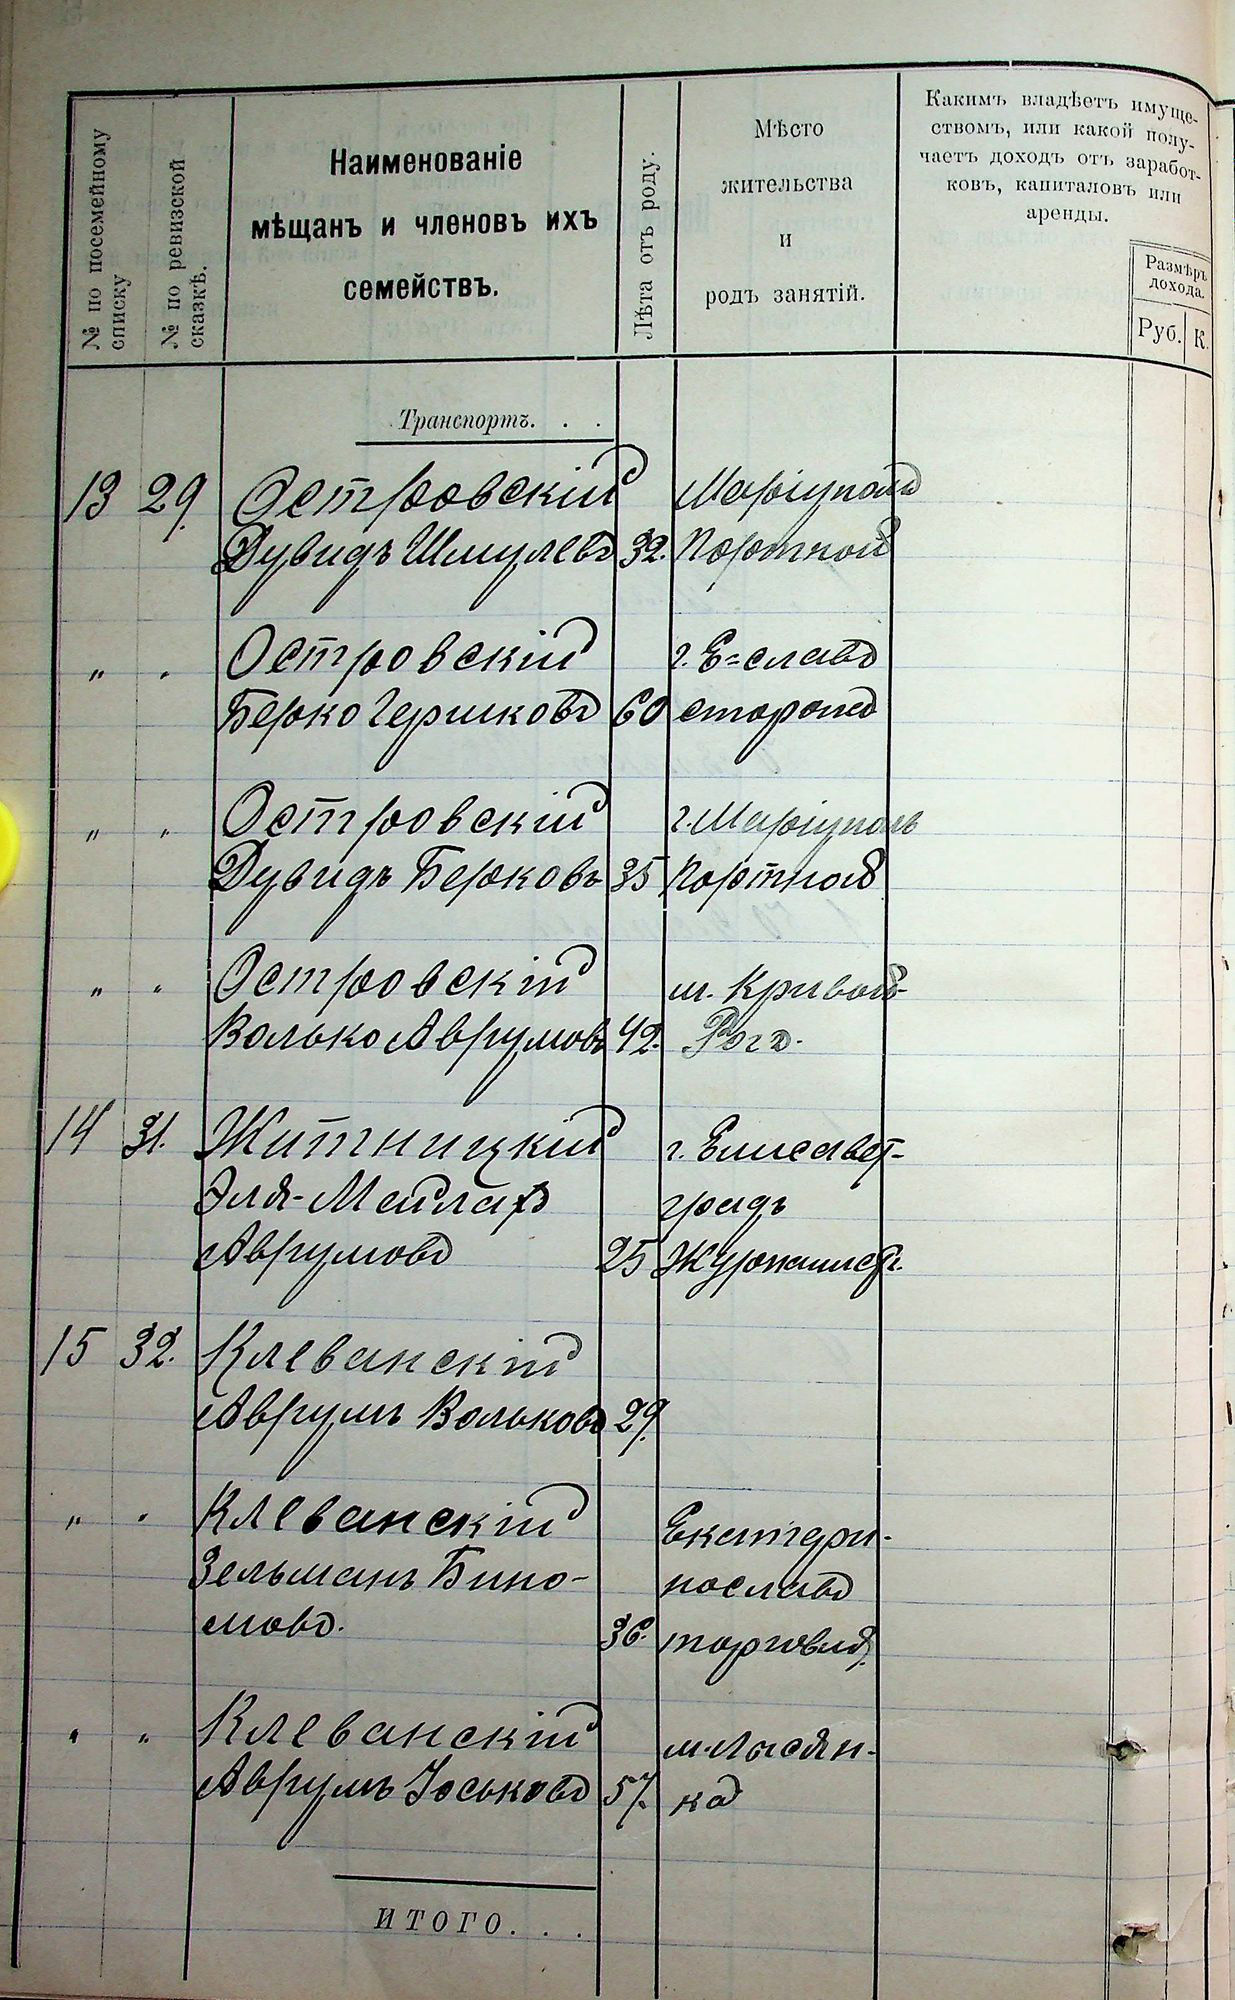 № по посемейному списку
№ по ревизской сказкѣ.
Наименованіе
мѣщанъ и членовъ ихъ
семействъ.
Лѣта отъ роду.
Мѣсто
жительства
и
родъ занятій.
Какимъ владѣетъ имуще-
ствомъ, или какой полу-
чаетъ доходъ отъ заработ-
ковъ, капиталовъ или
аренды.
Размѣръ
дохода.
Руб. К.
Транспортъ. . .
13 29. Островскій Маріуполь
Дувидъ Шмулевъ 32. Портной
" " Островскій г. Е=славъ
Берко Гершковъ 60 сторожъ
" " Островскій г. Маріуполь
Дувидъ Берковъ 35 Портной
" " Островскій м. Кривой-
Волько Аврумовъ 42. Рогъ.
14 31. Житницкій г. Елисавет-
Эля-Мейлахъ градъ
Аврумовъ 25 Журналист.
15 32. Клеванскій
Аврумъ Вольковъ 29.
" " Клеванскій Екатери-
Зельманъ Бино- нославъ
мовъ. 36. торговля.
" " Клеванскій м. Лысян-
Аврумъ Юськовъ 57. ка
ИТОГО. . .